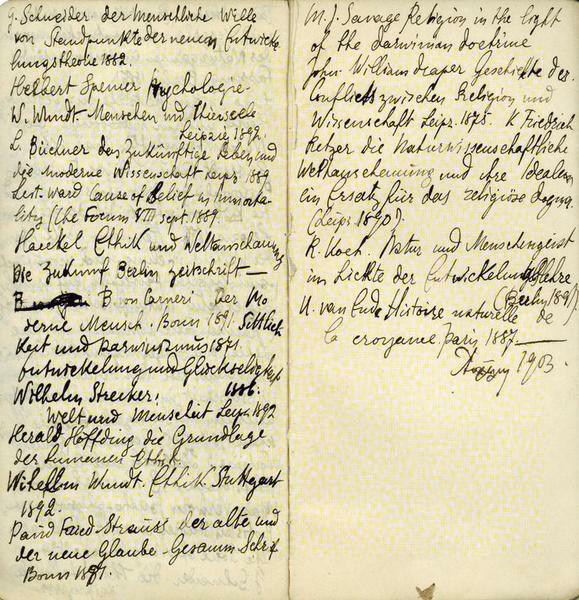 G. Schneider der Menschliche Wille
von Standpunkte der neuen Entwicke
lungstheorie 1882
Herbert Spencer Psychologie
W. Wundt Menschen und Thierseele
Leipzig 1892
L. Büchner das Zukünftige Leben und
die moderne Wissenschaft Leipz 1889
Lest. Ward Cause of Belief in Immorta-
lity (The Forum VIII sept 1889
Haeckel Ethik und Weltanschauung
Die Zukunf Berlin Zeitschrift —
B. von Carneri Der Mo
derne Mensch. Bonn 1891. Sittlich
Keit und Darwinismus 1871.
Entwickelung und Glückseligkeit
1886.
Wilhelm Strecker!
Welt und Menscheit Leipz. 1892
Herald Höffding die Grundlage
der humanen Ethik.
Wilhelm Wundt. Ethik Stuttgart
1892.
David Fried Strauss der alte und
der neue Glaube. Gesamm Schrif
Bonn 1871.
M. J. Savage Religion in the light
of the darwinian doctrine
John William Draper Geschichte der
Conflicts zwischen Religion und
Wissenschaft Leipz. 1875. K Friedrich
Retzer die Naturwissenschaftliche
Weltanschauung und ihre Idealen
ein Ersatz für das religiöse dogma
(Leipz 1890).
R. Koch. Natur und Menschengeist
im Lichte der Entwickelungslehre
(Berlin 1891).
U. van Ende Histoire naturelle de
la croyance Paris 1887. —
1903.